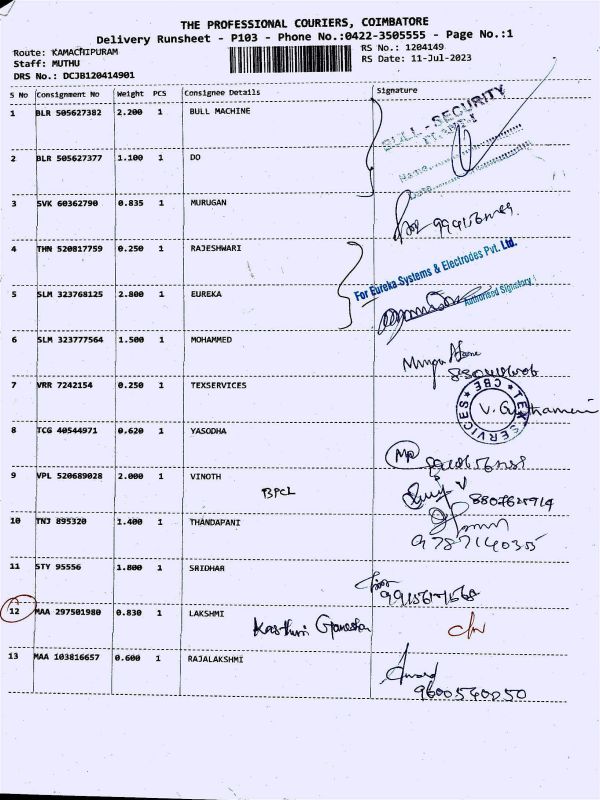 THE PROFESSIONAL COURIERS, COIMBATORE
Delivery Runsheet - P103 - Phone No.:0422-3505555 - Page No.:1
Route: KAMACHIPURAM RS No.: 1204149
Staff: MUTHU RS Date: 11-Jul-2023
DRS No.: DCJB120414901
S No Consignment No Weight PCS Consignee Details Signature
1 BLR 505627382 2.200 1 BULL MACHINE
BULL - SECURITY
Name
Date
2 BLR 505627377 1.100 1 DO
3 SVK 60362790 0.835 1 MURUGAN
4 THN 520817759 0.250 1 RAJESHWARI
For Eureka Systems & Electrodes Pvt. Ltd.
5 SLM 323768125 2.800 1 EUREKA
Authorised Signatory
6 SLM 323777564 1.500 1 MOHAMMED
7 VRR 7242154 0.250 1 TEXSERVICES
TEK SERVICES CBE
8 TCG 40544971 0.620 1 YASODHA
9 VPL 520689028 2.000 1 VINOTH
BPCL
10 TNJ 895320 1.400 1 THANDAPANI
9787140355
11 STY 95556 1.800 1 SRIDHAR
12 MAA 297501980 0.830 1 LAKSHMI
Kasthuri Ganesha
13 MAA 103816657 0.600 1 RAJALAKSHMI
9600540050